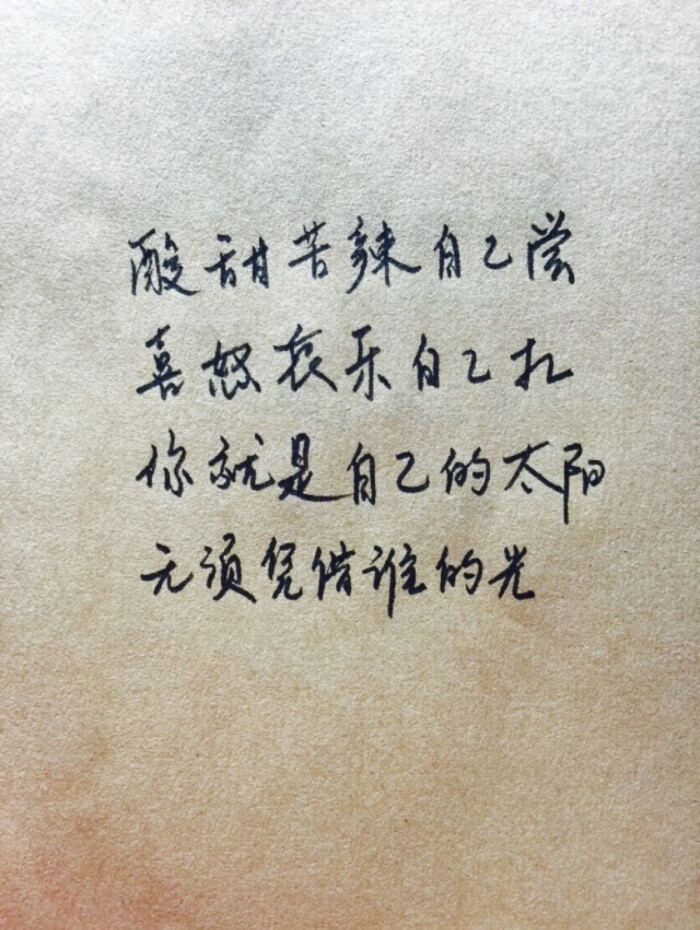 酸甜苦辣自己尝
喜怒哀乐自己扎
你就是自己的太阳
无须凭借谁的光